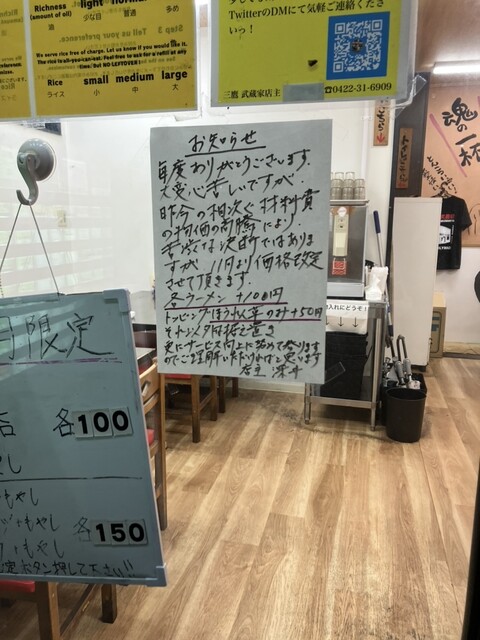 Richness light normal
(amount of oil) 少な目 普通 多め
We serve rice free of charge. Let us know if you would like it.
The rice is all-you-can-eat. Feel free to ask for a refill at any
time. But NO LEFTOVER!
Rice small medium large
ライス 小 中 大
TwitterのDMにて気軽ご連絡くださ
いっ！
三鷹 武蔵家店主 ☎0422-31-6909
魂の
一杯
お知らせ
毎度ありがとうございます。
大変心苦しいですが、
昨今の相次ぐ材料費
の物価の高騰により、
苦渋な決断ではありま
すが、11月より価格改定
させて頂きます。
各ラーメン +100円
トッピングほうれん草のみ+50円
それ以外は据え置き
更にサービス向上に努めて参ります
のでご理解いただければと思います
店主
入れにどうぞ
月限定
各100
もやし
もやし
各150
もやし
定ボタン押して下さい!!